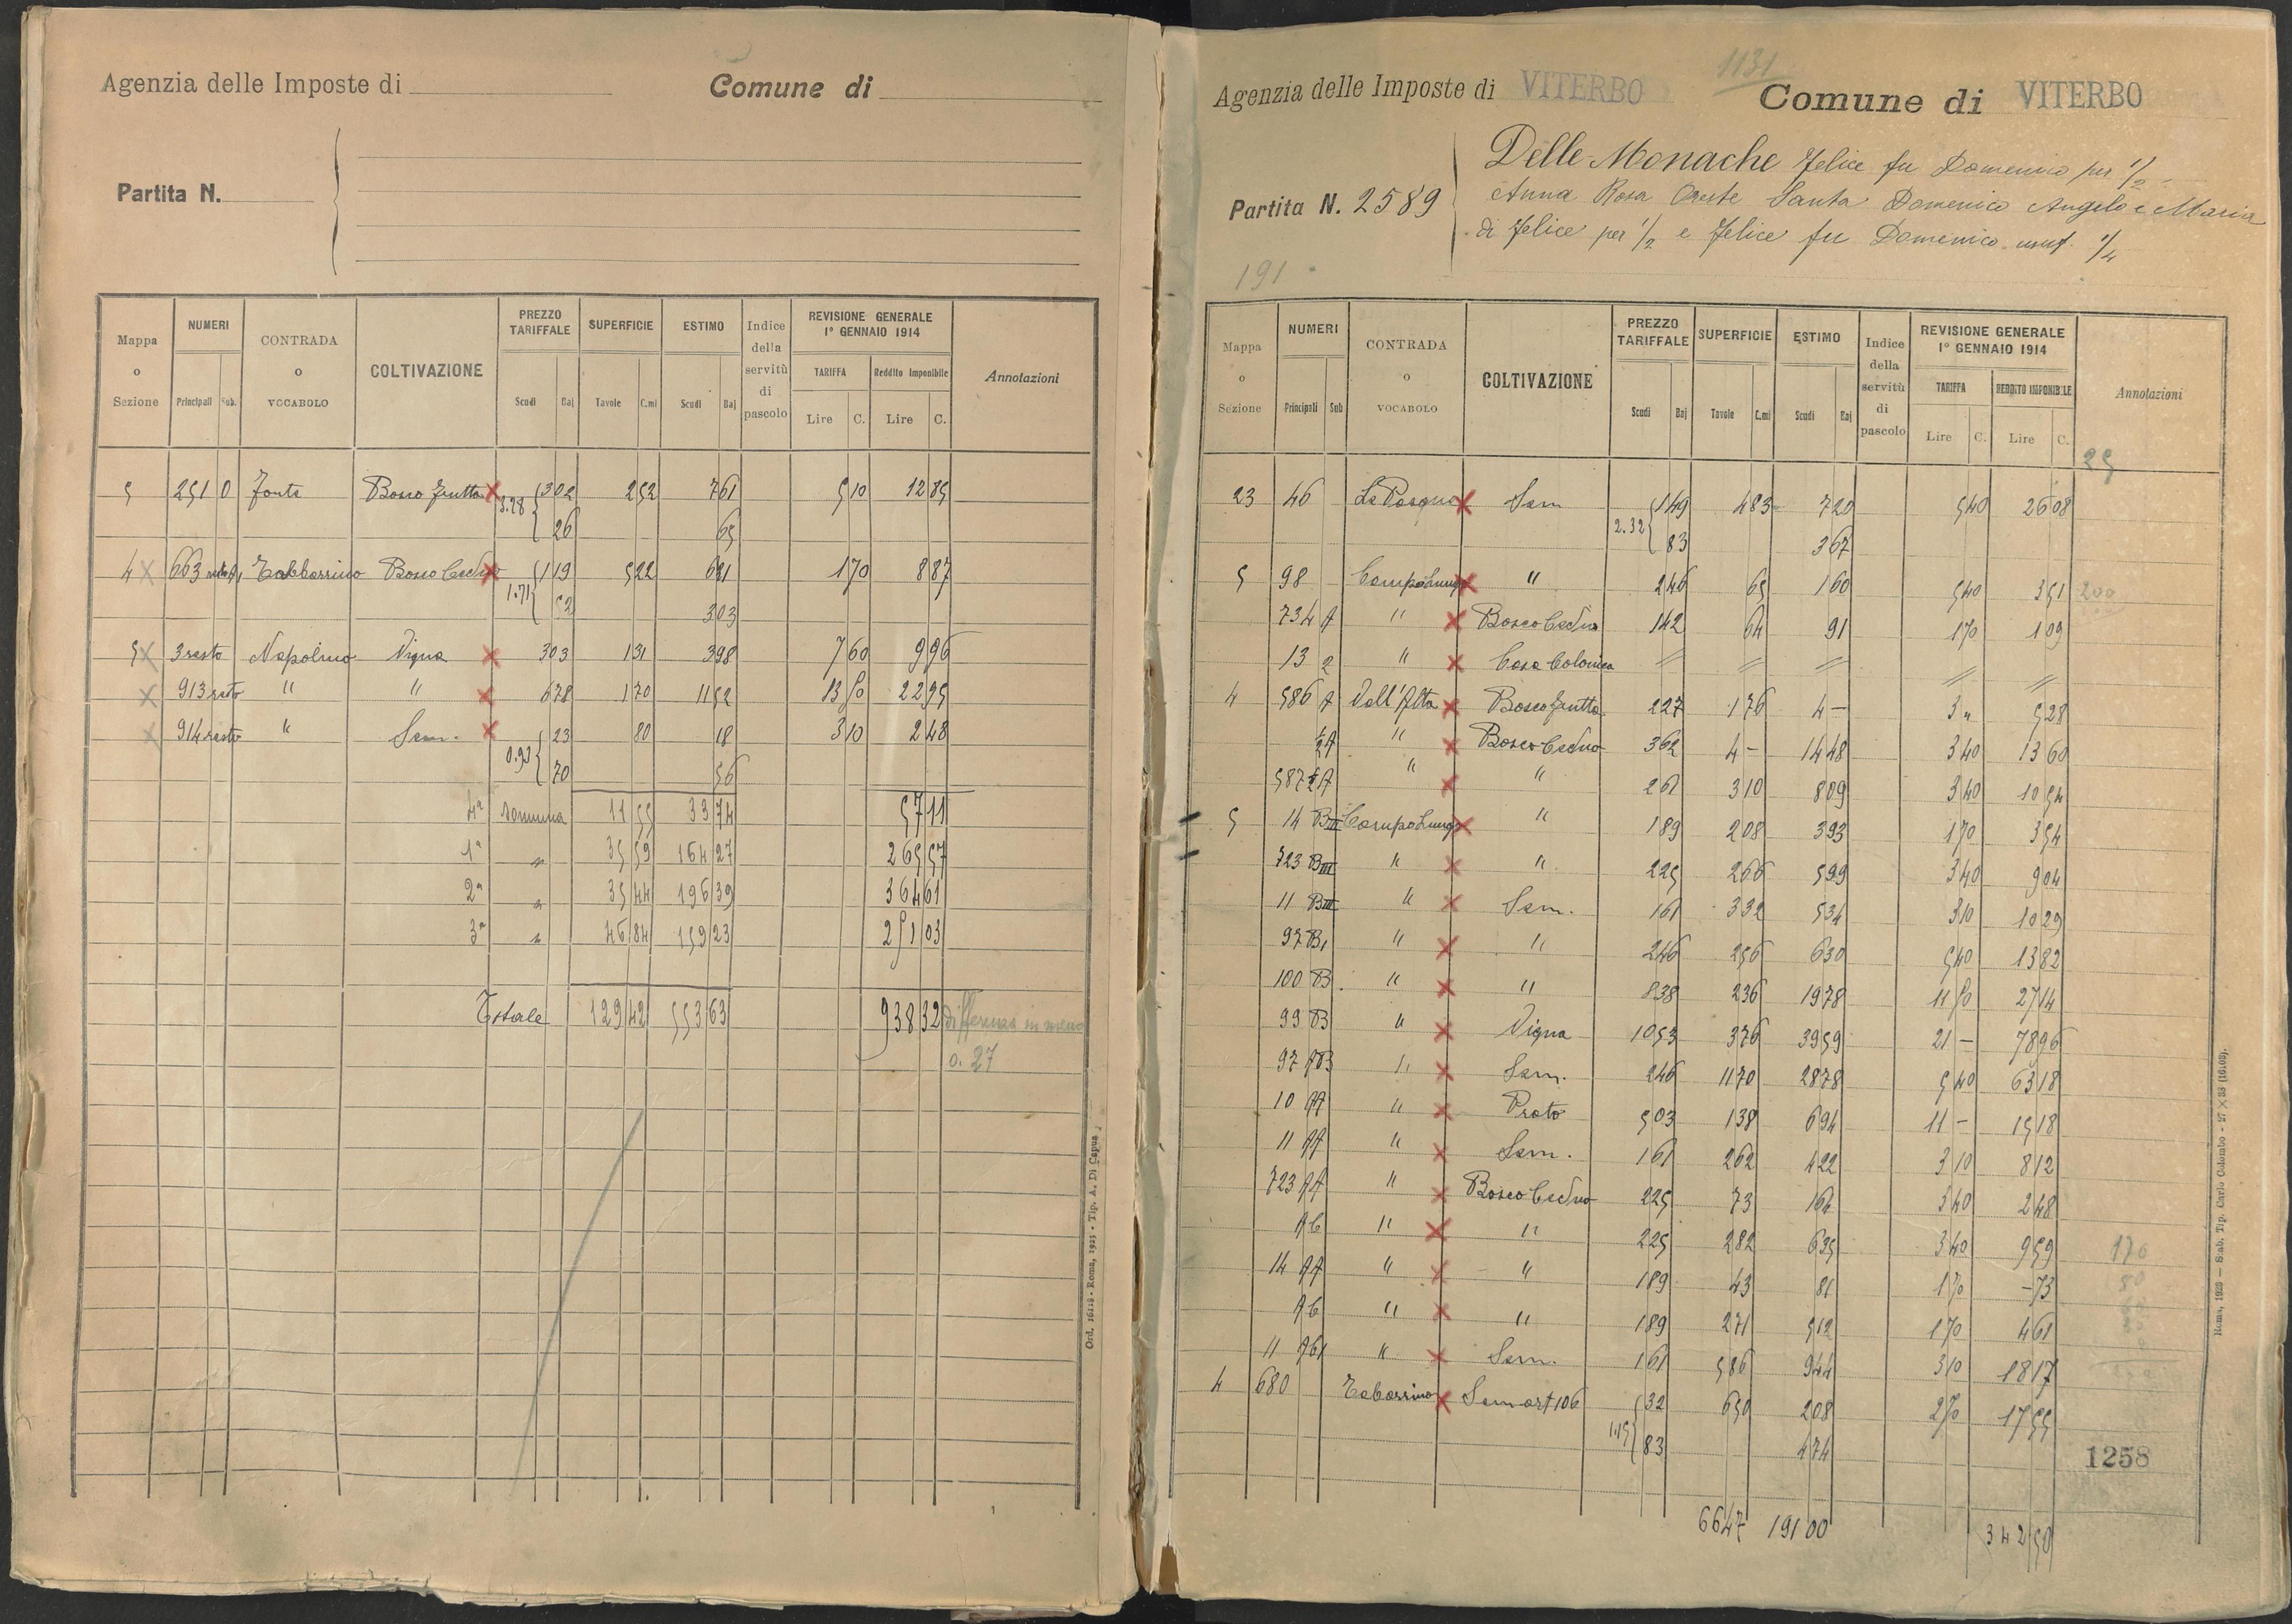 Agenzia delle Imposte di
Comune di
Partita N.
Mappa o Sezione
NUMERI
Principali Sub.
CONTRADA o VOCABOLO
COLTIVAZIONE
PREZZO TARIFFALE
Scudi Baj
SUPERFICIE
Tavole C.mi
ESTIMO
Scudi Baj
Indice della servitù di pascolo
REVISIONE GENERALE 1° GENNAIO 1914
TARIFFA Reddito Imponibile
Lire C. Lire C.
Annotazioni
5 251 0 Fonte Bosco frutta 3.28 3 02 2 52 7 61 5 10 12 85
26 65
4 663 Tabborrino Bosco Ceduo 1.71 1 19 5 22 6 21 1 70 8 87
52 3 03
5 3 resto Napolino Vigna 3 03 1 31 3 98 7 60 9 96
913 resto " " 6 78 1 70 11 52 13 50 22 95
914 resto " Sem. 0.93 23 80 18 3 10 2 48
70 56
4ª somma 11 55 33 74 57 11
1ª " 35 59 164 27 265 57
2ª " 35 44 196 39 364 61
3ª " 46 84 159 23 251 03
Totale 129 42 553 63 938 32 differenza in meno
0. 27
Ord. 16118 - Roma, 1925 - Tip. A. Di Capua
1131
Agenzia delle Imposte di VITERBO
Comune di VITERBO
Partita N. 2589
Delle Monache Felice fu Domenico per 1/2
Anna Rosa Oreste Santa Domenico Angelo e Maria
di Felice per 1/2 e Felice fu Domenico usuf. 1/4
191
Mappa o Sezione
NUMERI
Principali Sub
CONTRADA o VOCABOLO
COLTIVAZIONE
PREZZO TARIFFALE
Scudi Baj
SUPERFICIE
Tavole C.mi
ESTIMO
Scudi Baj
Indice della servitù di pascolo
REVISIONE GENERALE 1° GENNAIO 1914
TARIFFA REDDITO IMPONIBILE
Lire C. Lire C.
Annotazioni
25
23 46 Sem 2.32 1 49 4 83 7 20 5 40 26 08
83 3 67
5 98 Campo Lungo " 2 46 65 1 60 5 40 3 51 200
734 A " Bosco Ceduo 1 42 64 91 1 70 1 09
13 2 " Casa Colonica // // // // //
4 586 A Vall'Alta Bosco frutta 2 27 1 76 4 — 3 " 5 28
1/2 A " Bosco Ceduo 3 62 4 — 14 48 3 40 13 60
587 1/2 A " " 2 61 3 10 8 09 3 40 10 54
5 14 BIII Campo Lungo " 1 89 2 08 3 93 1 70 3 54
723 BIII " " 2 25 2 66 5 99 3 40 9 04
11 BIII " Sem. 1 61 3 32 5 34 3 10 10 29
97 B1 " " 2 46 2 56 6 30 5 40 13 82
100 B " " 8 38 2 36 19 78 11 50 27 14
99 B " Vigna 10 53 3 76 39 59 21 — 78 96
97 AB " Sem. 2 46 11 70 28 78 5 40 63 18
10 AA " Prato 5 03 1 38 6 94 11 — 15 18
11 AA " Sem. 1 61 2 62 4 22 3 10 8 12
723 AA " Bosco Ceduo 2 25 73 1 64 3 40 2 48
Ab " " 2 25 2 82 6 35 3 40 9 59 170
14 AA " " 1 89 43 81 1 70 — 73 80
Ab " " 1 89 2 71 5 12 1 70 4 61
11 Ab1 " Sem. 1 61 5 86 9 44 3 10 18 17
4 680 Tabarrino Sem art 106 1.15 32 6 50 2 08 2 70 17 55
83 4 74
1258
66 47 191 00 342 50
Roma, 1923 — Stab. Tip. Carlo Colombo - 27 × 38 (16103).